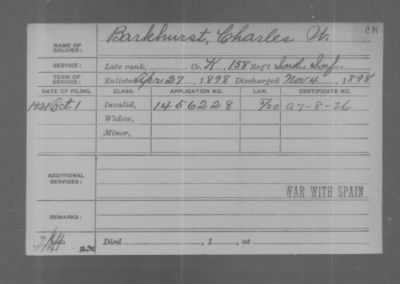 CM
NAME OF SOLDIER: Barkhurst, Charles M.
SERVICE: Late rank, Co. K, 158 Reg't Ind. Inf.
TERM OF SERVICE: Enlisted Apr 27, 1898 Discharged Nov 4, 1898
DATE OF FILING. CLASS. APPLICATION NO. LAW. CERTIFICATE NO.
1921 Oct 1 Invalid, 1456228 A7-8-26
Widow,
Minor,
ADDITIONAL SERVICES:
WAR WITH SPAIN
REMARKS:
Died , 1 , at